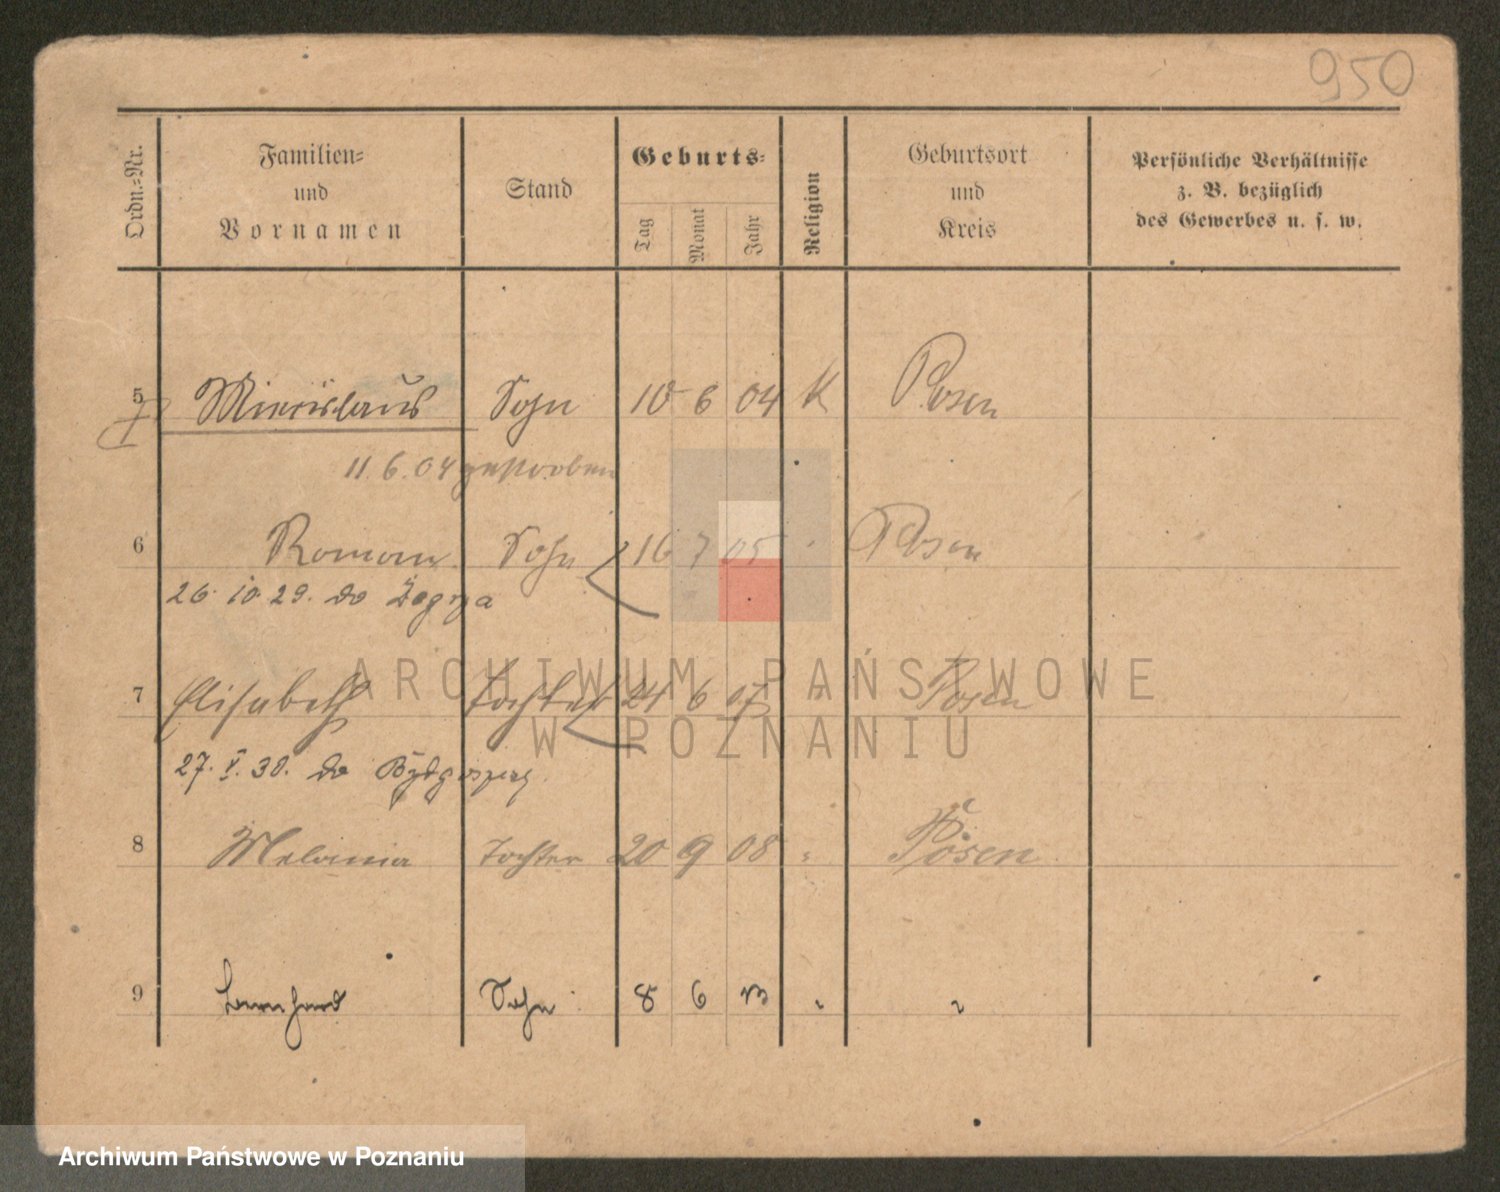 950
Ordn.-Nr. Familien- und Vornamen Stand Geburts- Tag Monat Jahr Religion Geburtsort und Kreis Persönliche Verhältnisse z. B. bezüglich des Gewerbes u. s. w.
5 Miecislaus Sohn 10 6 04 K Posen
11. 6. 04 gestorben
6 Roman Sohn 16 7 05 " Posen
26. 10. 29. do Żegrza
7 Elisabeth Tochter 24 6 07 " Posen
ARCHIWUM PAŃSTWOWE
W POZNANIU
27. V. 30. do Bydgoszczy
8 Melania Tochter 20 9 08 " Posen
9 Bernhard Sohn 8 6 13 " "
Archiwum Państwowe w Poznaniu